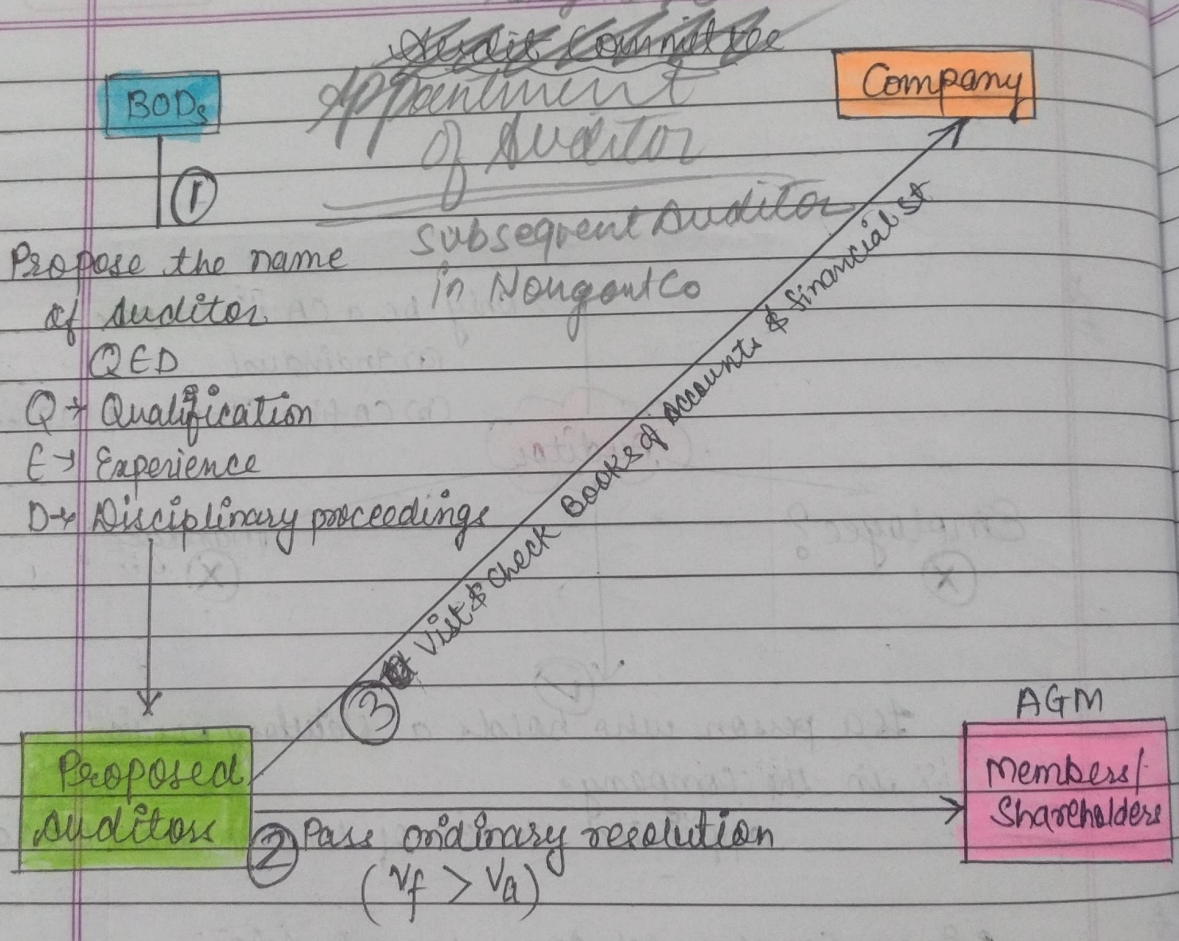 Audit Committee
Appointment
of Auditor
Subsequent Auditor
in NongovtCo
BODs
Company
①
Propose the name
of Auditor
QED
Q → Qualification
E → Experience
D → Disciplinary proceedings
③ Vist & Check Books of Accounts & financial st
Proposed
Auditors
② Pass ordinary resolution
(Vf > Va)
AGM
Members/
Shareholders